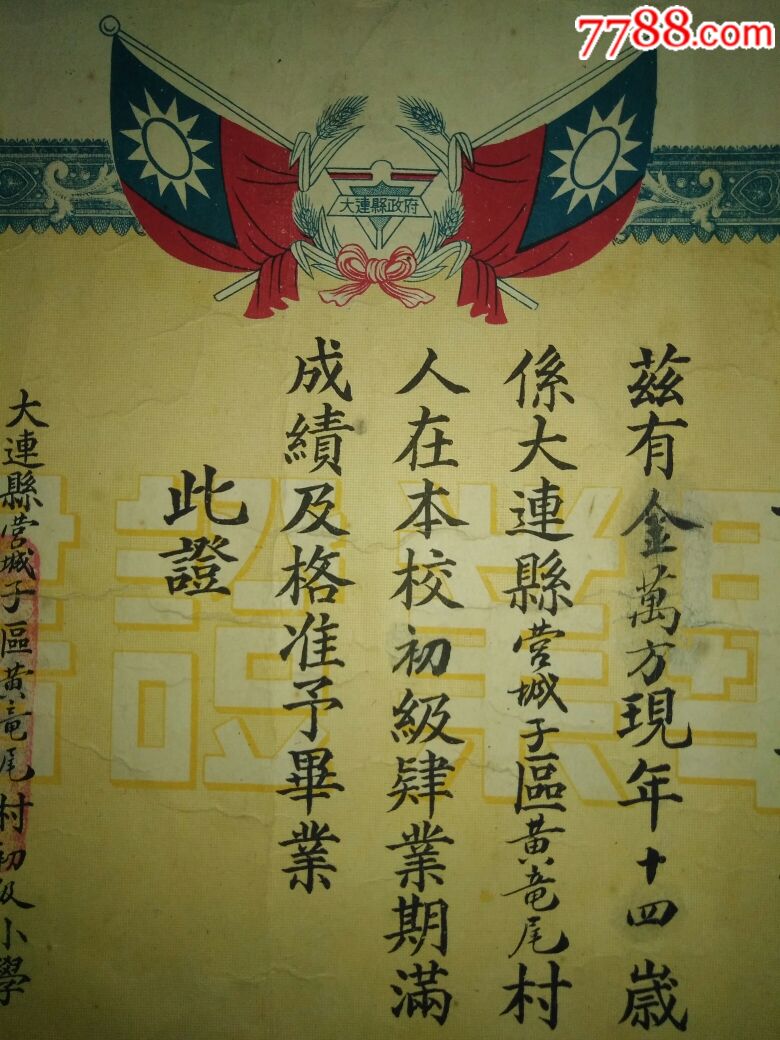 7788.com
大連縣政府
茲有金萬方現年十四歲
係大連縣营城子區黃竜尾村
人在本校初級肄業期滿
成績及格准予畢業
此證
大連縣营城子區黃竜尾村初級小學